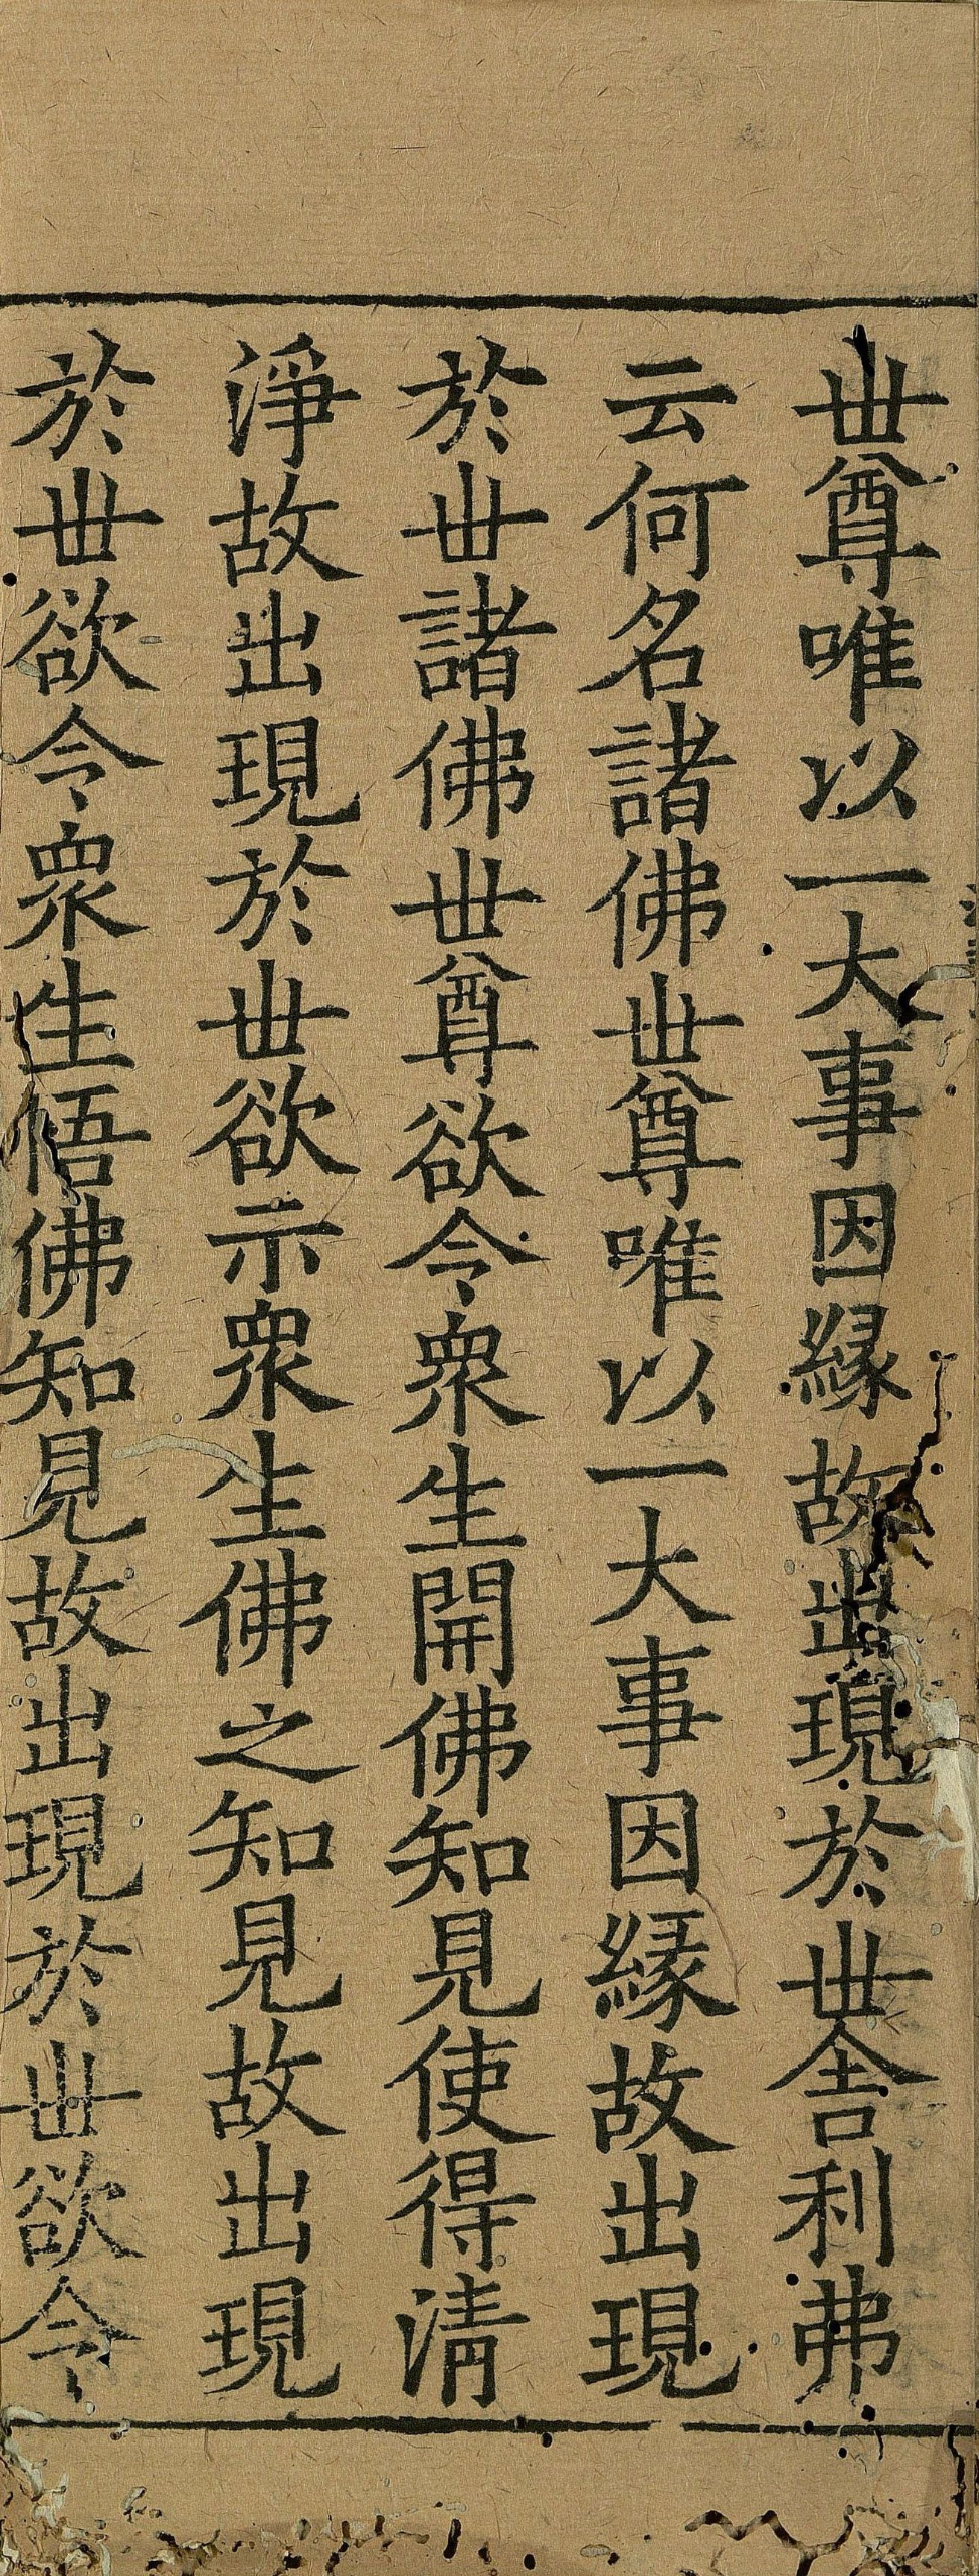 世尊唯以一大事因緣故出現於世舍利弗
云何名諸佛世尊唯以一大事因緣故出現
於世諸佛世尊欲令衆生開佛知見使得清
淨故出現於世欲示衆生佛之知見故出現
於世欲令衆生悟佛知見故出現於世欲令